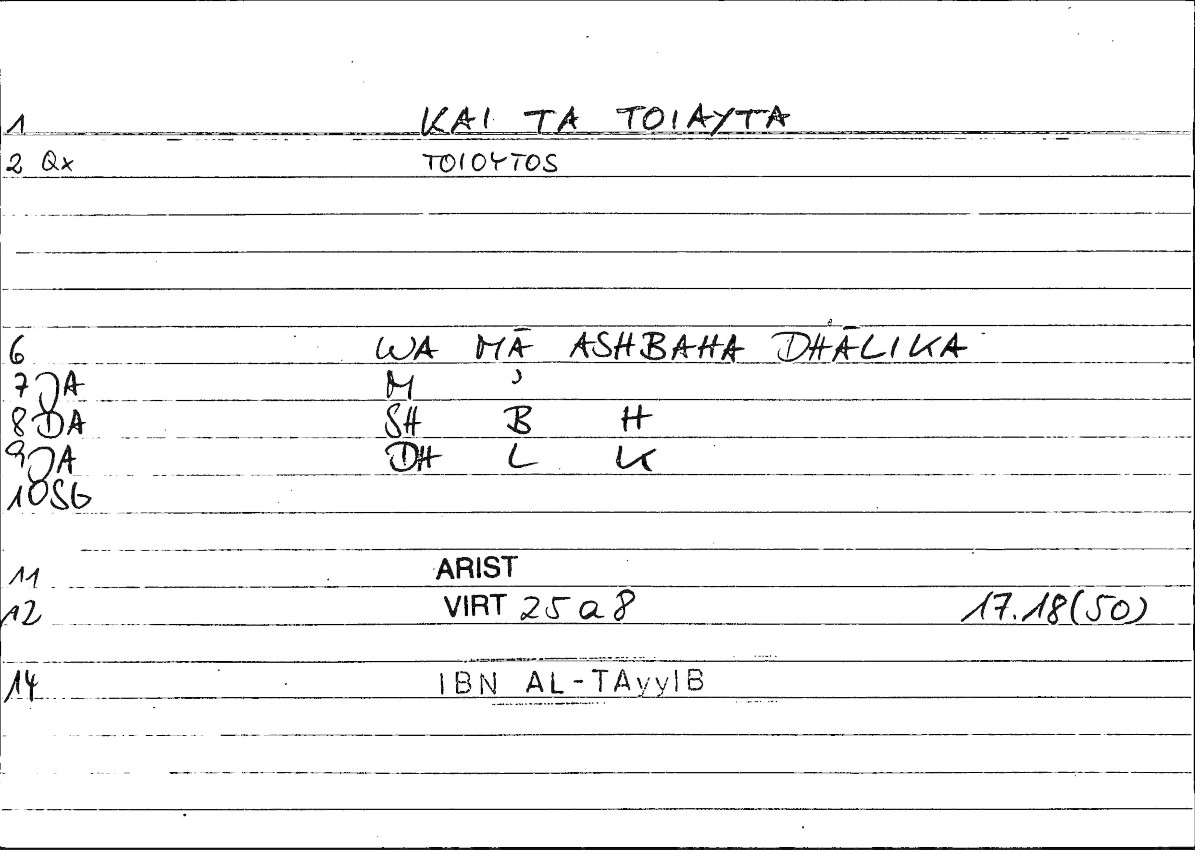 1 KAI TA TOIAYTA
2 Qx TOIOYTOS
6 WA MĀ ASHBAHA DHĀLIKA
7 JA M ʾ
8 DA SH B H
9 JA DH L K
10 SG
11 ARIST
12 VIRT 25a8 17.18(50)
14 IBN AL-TAyyIB